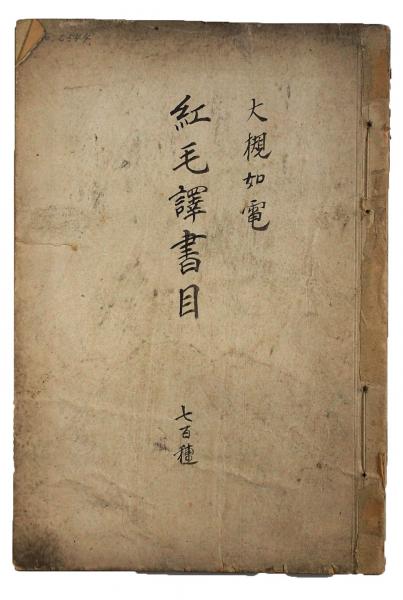 大槻如電
紅毛譯書目
七百種